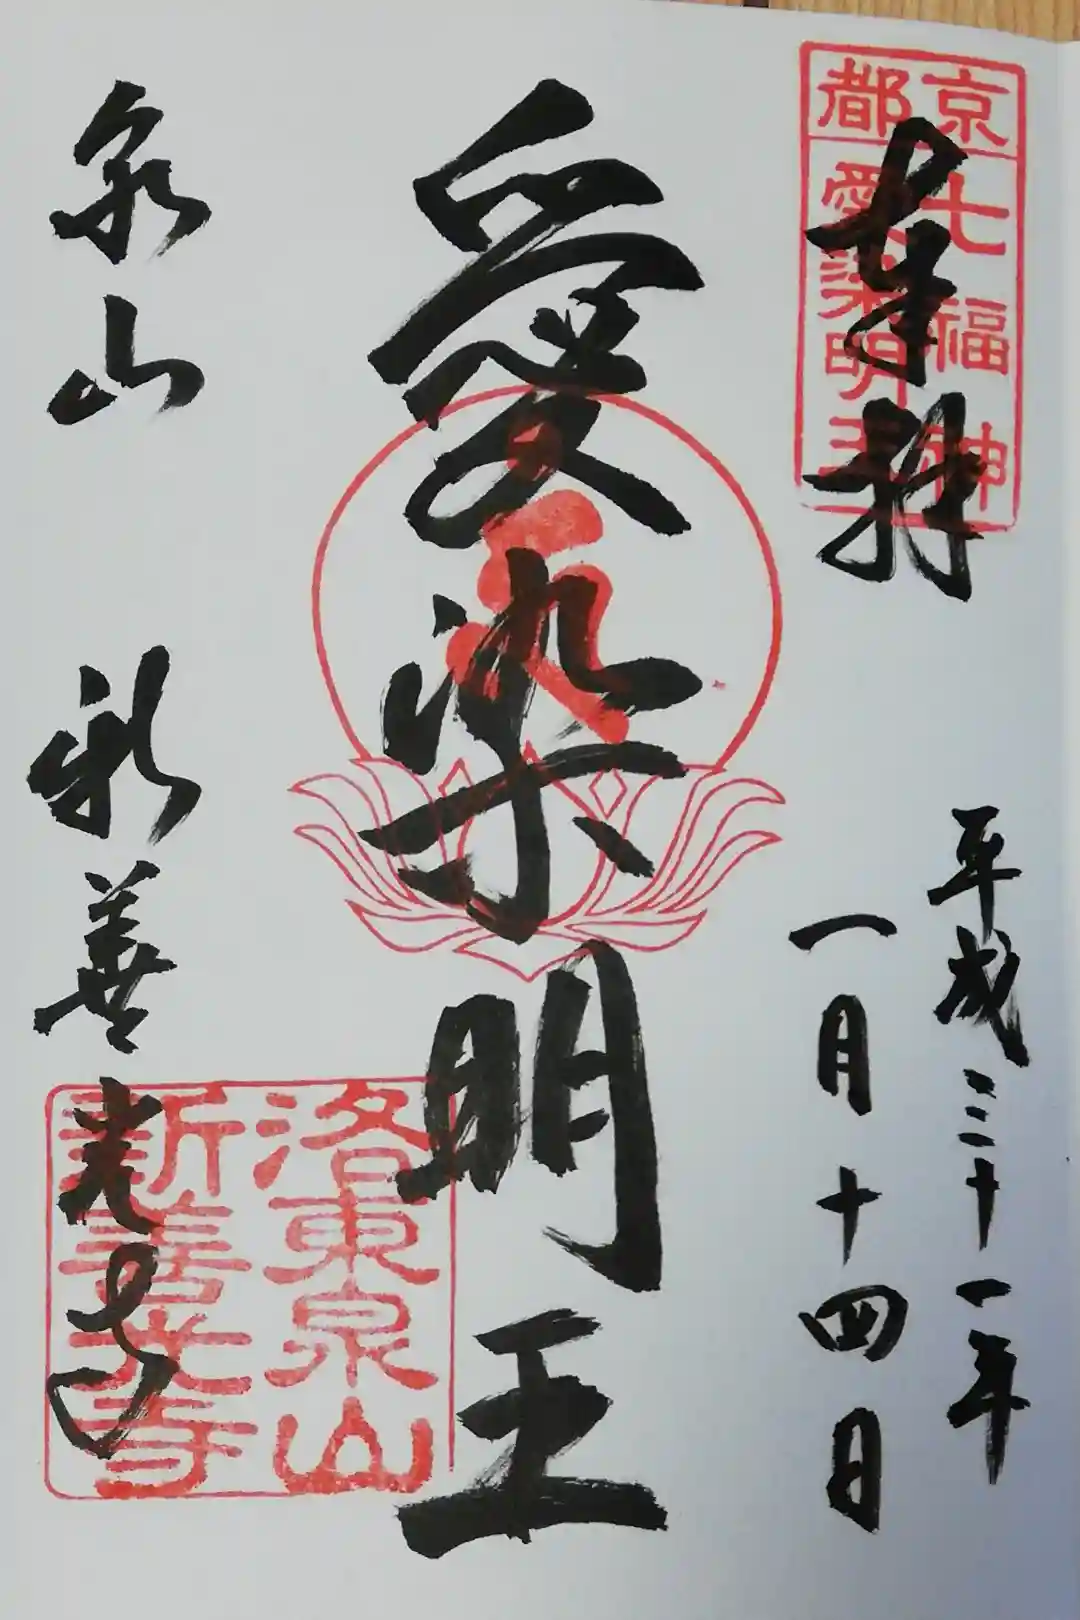 京都
七福神
愛染明王
奉拝
平成三十一年
一月十四日
愛染明王
泉山 新善光寺
洛東泉山
新善光寺